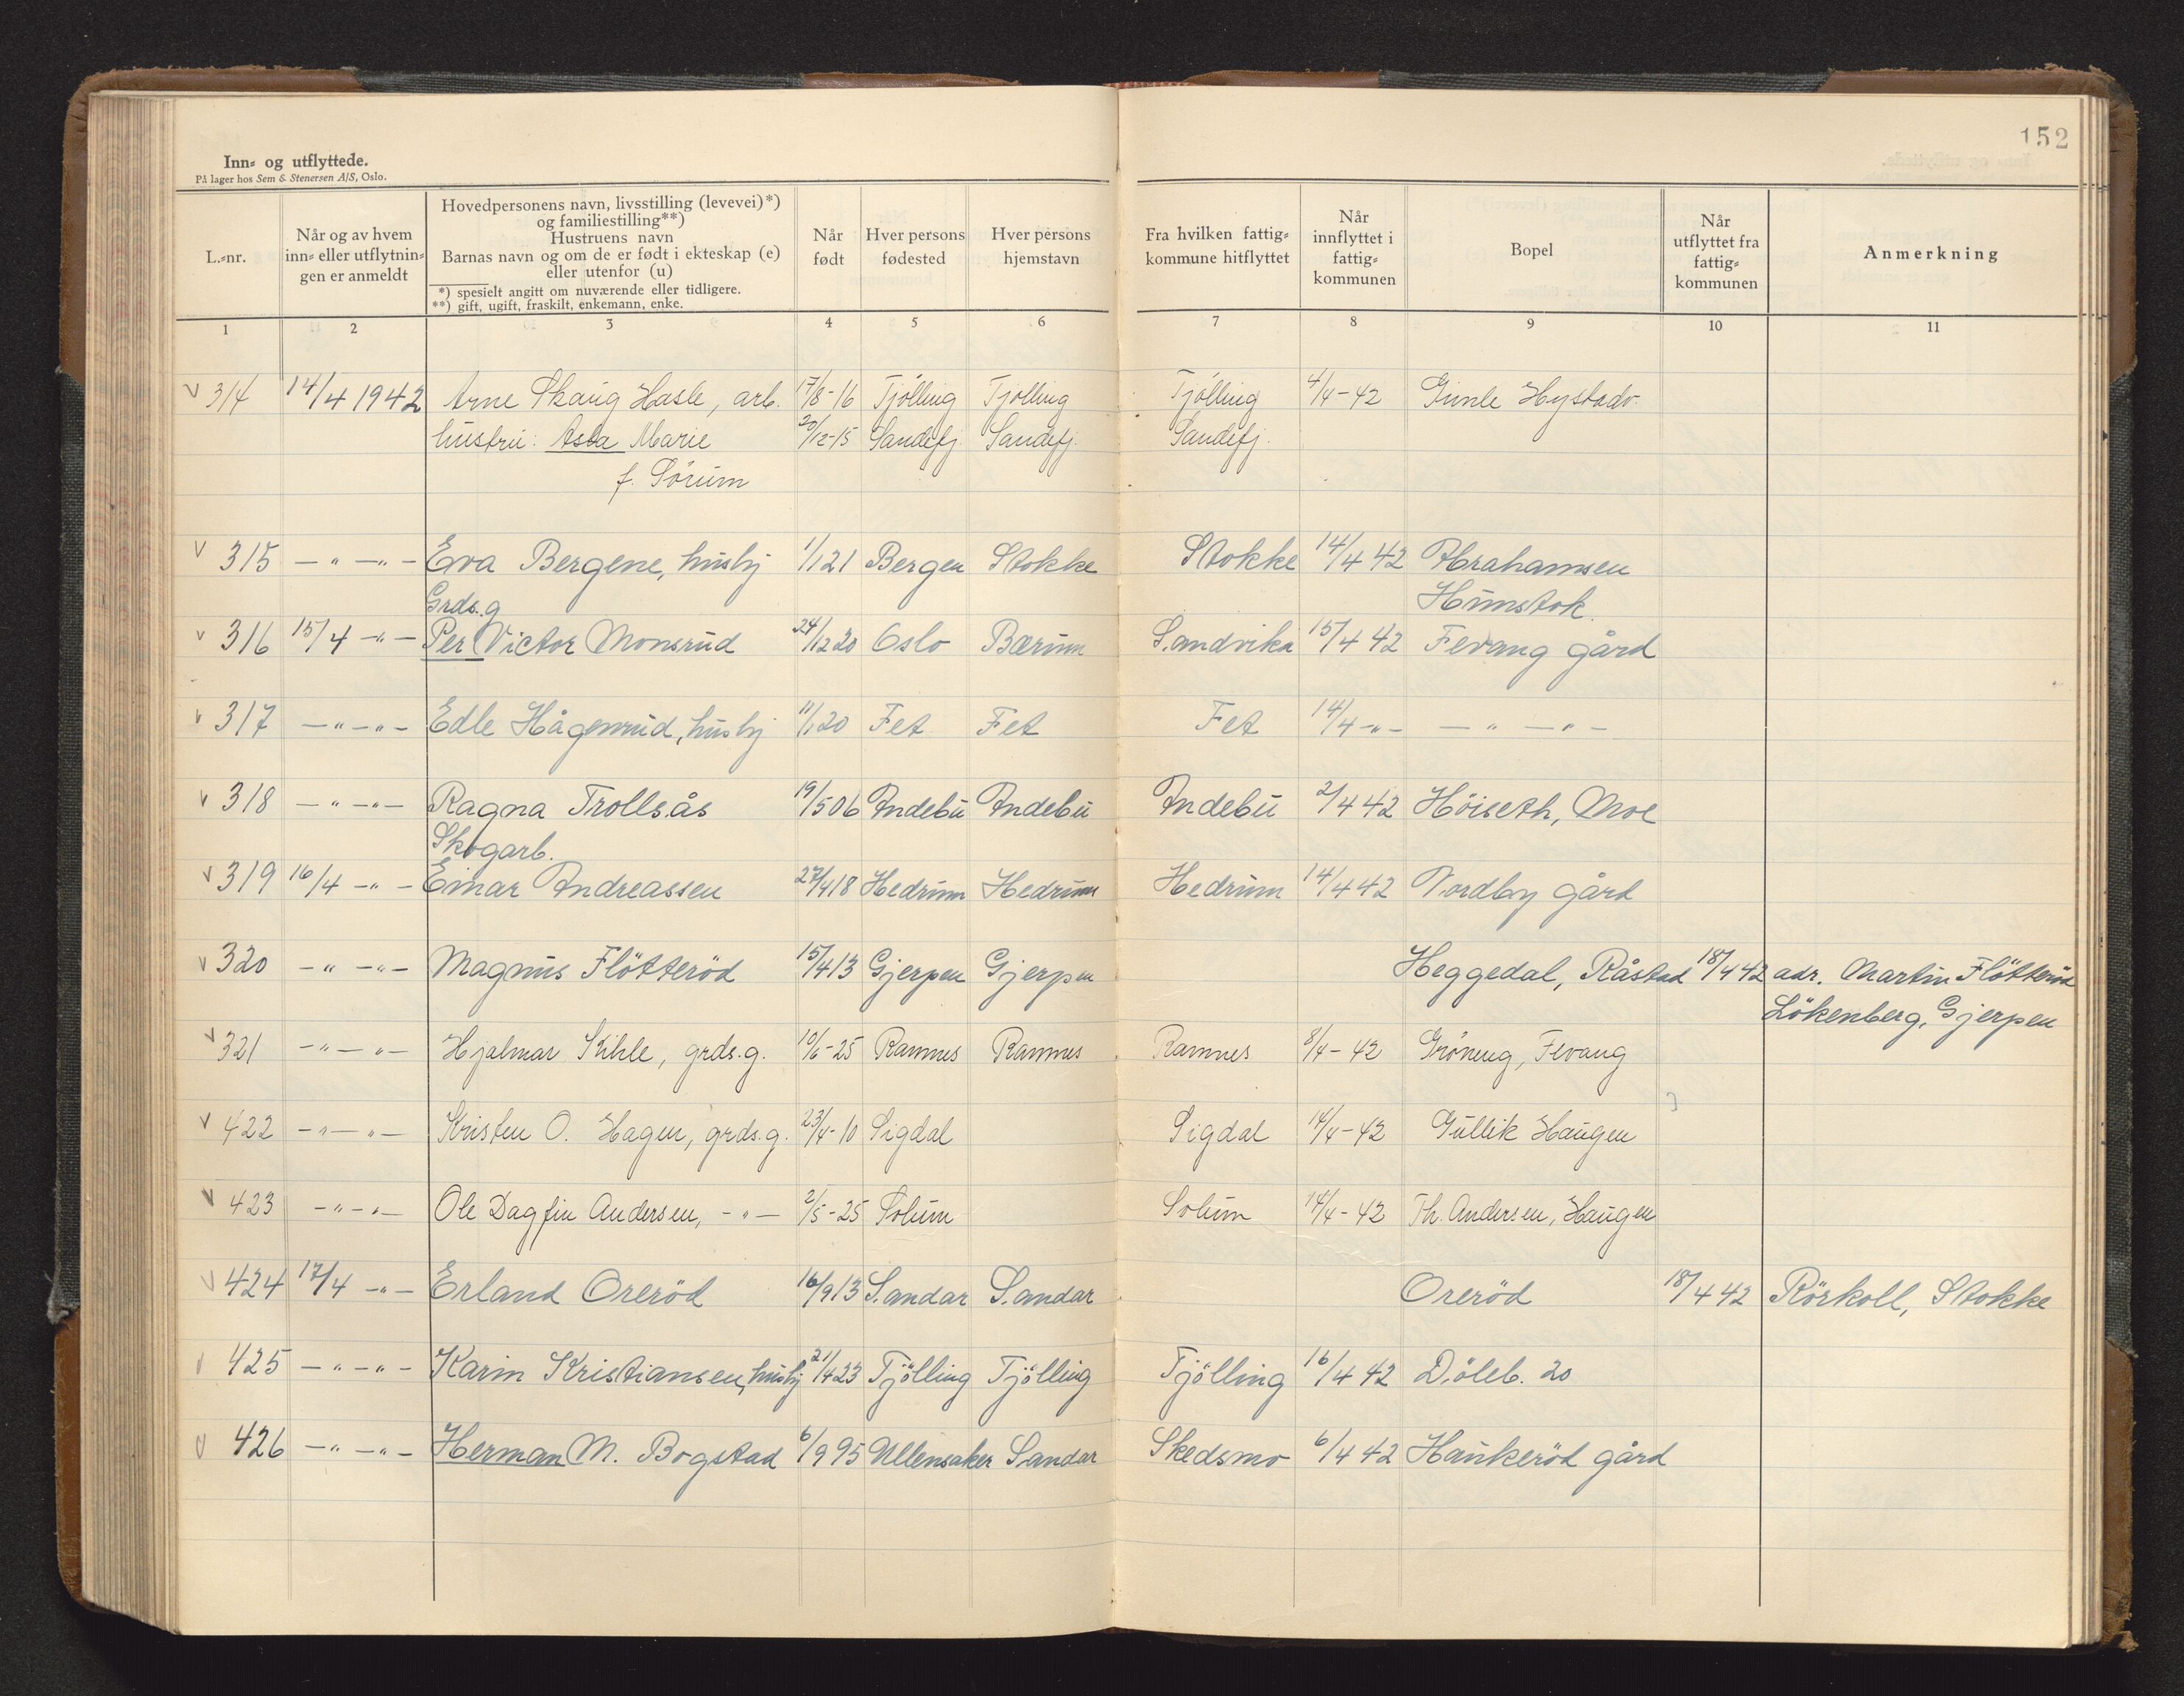 152
Inn- og utflyttede.
På lager hos Sem & Stenersen A/S, Oslo.
L.-nr.
Når og av hvem
inn- eller utflytnin-
gen er anmeldt
Hovedpersonens navn, livsstilling (levevei)*)
og familiestilling**)
Hustruens navn
Barnas navn og om de er født i ekteskap (e)
eller utenfor (u)
*) spesielt angitt om nuværende eller tidligere.
**) gift, ugift, fraskilt, enkemann, enke.
Når
født
Hver persons
fødested
Hver persons
hjemstavn
Fra hvilken fattig-
kommune hitflyttet
Når
innflyttet i
fattig-
kommunen
Bopel
Når
utflyttet fra
fattig-
kommunen
Anmerkning
1 2 3 4 5 6 7 8 9 10 11
V 314 14/4 1942 Arne Skaug Hasle, arb. 17/8-16 Tjølling Tjølling Tjølling 4/4-42 Gimle Hystadv.
hustru: Asta Marie 20/12-15 Sandefj. Sandefj. Sandefj.
f. Sörum
V 315 -"-"- Eva Bergene, hushj 1/1 21 Bergen Stokke Stokke 14/4 42 Abrahamsen
Grds.g Hunstok.
V 316 15/4 -"- Per Victor Monsrud 24/12 20 Oslo Bærum Sandvika 15/4 42 Fevang gård
V 317 -"-"- Edle Hågenrud, hushj 11/1 20 Fet Fet Fet 14/4 -"- -"-"-
V 318 -"-"- Ragna Trollsås 19/5 06 Andebu Andebu Andebu 2/4 42 Höiseth, Moe
Skogarb.
V 319 16/4 -"- Einar Andreassen 27/4 18 Hedrum Hedrum Hedrum 14/4 42 Nordby gård
V 320 -"-"- Magnus Flötteröd 15/4 13 Gjerpen Gjerpen Heggedal, Råstad 18/4 42 adr. Martin Flötteröd
Lökenberg, Gjerpen
V 321 -"-"- Hjalmar Kihle, grds.g. 10/6-25 Ramnes Ramnes Ramnes 8/4-42 Gröneng, Fevang
V 422 -"-"- Kristen O. Hagen, grds.g. 23/4-10 Sigdal Sigdal 14/4-42 Gullik Haugen
V 423 -"-"- Ole Dagfin Andersen, -"- 2/5-25 Solum Solum 14/4-42 Th. Andersen, Haugen
V 424 17/4 -"- Erland Oreröd 16/9 13 Sandar Sandar Oreröd 18/4 42 Rörkoll, Stokke
V 425 -"-"- Karin Kristiansen, hushj 21/4 23 Tjölling Tjölling Tjölling 16/4 42 Döleb. 20
V 426 -"-"- Herman M. Bogstad 6/9 95 Ullensaker Sandar Skedsmo 6/4 42 Haukeröd gård